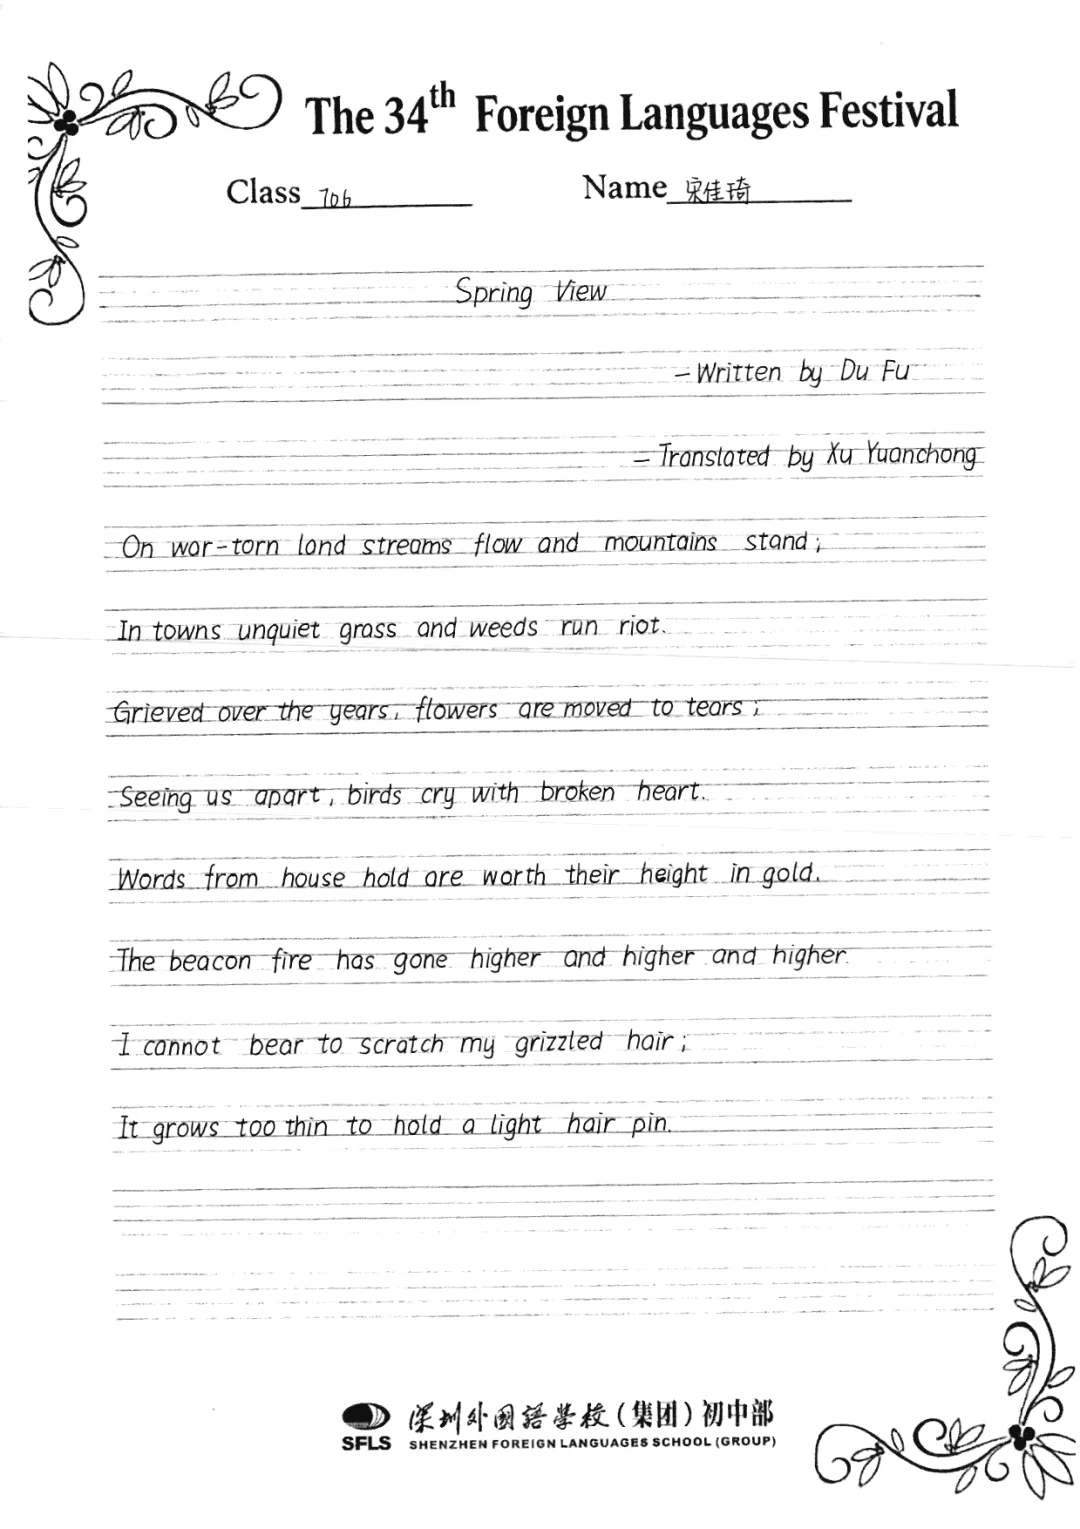 The 34th Foreign Languages Festival
Class 706 Name 宋佳琦
Spring View
– Written by Du Fu
– Translated by Xu Yuanchong
On war-torn land streams flow and mountains stand;
In towns unquiet grass and weeds run riot.
Grieved over the years, flowers are moved to tears;
Seeing us apart, birds cry with broken heart.
Words from house hold are worth their height in gold.
The beacon fire has gone higher and higher and higher.
I cannot bear to scratch my grizzled hair;
It grows too thin to hold a light hair pin.
深圳外國語學校(集团)初中部
SFLS SHENZHEN FOREIGN LANGUAGES SCHOOL (GROUP)